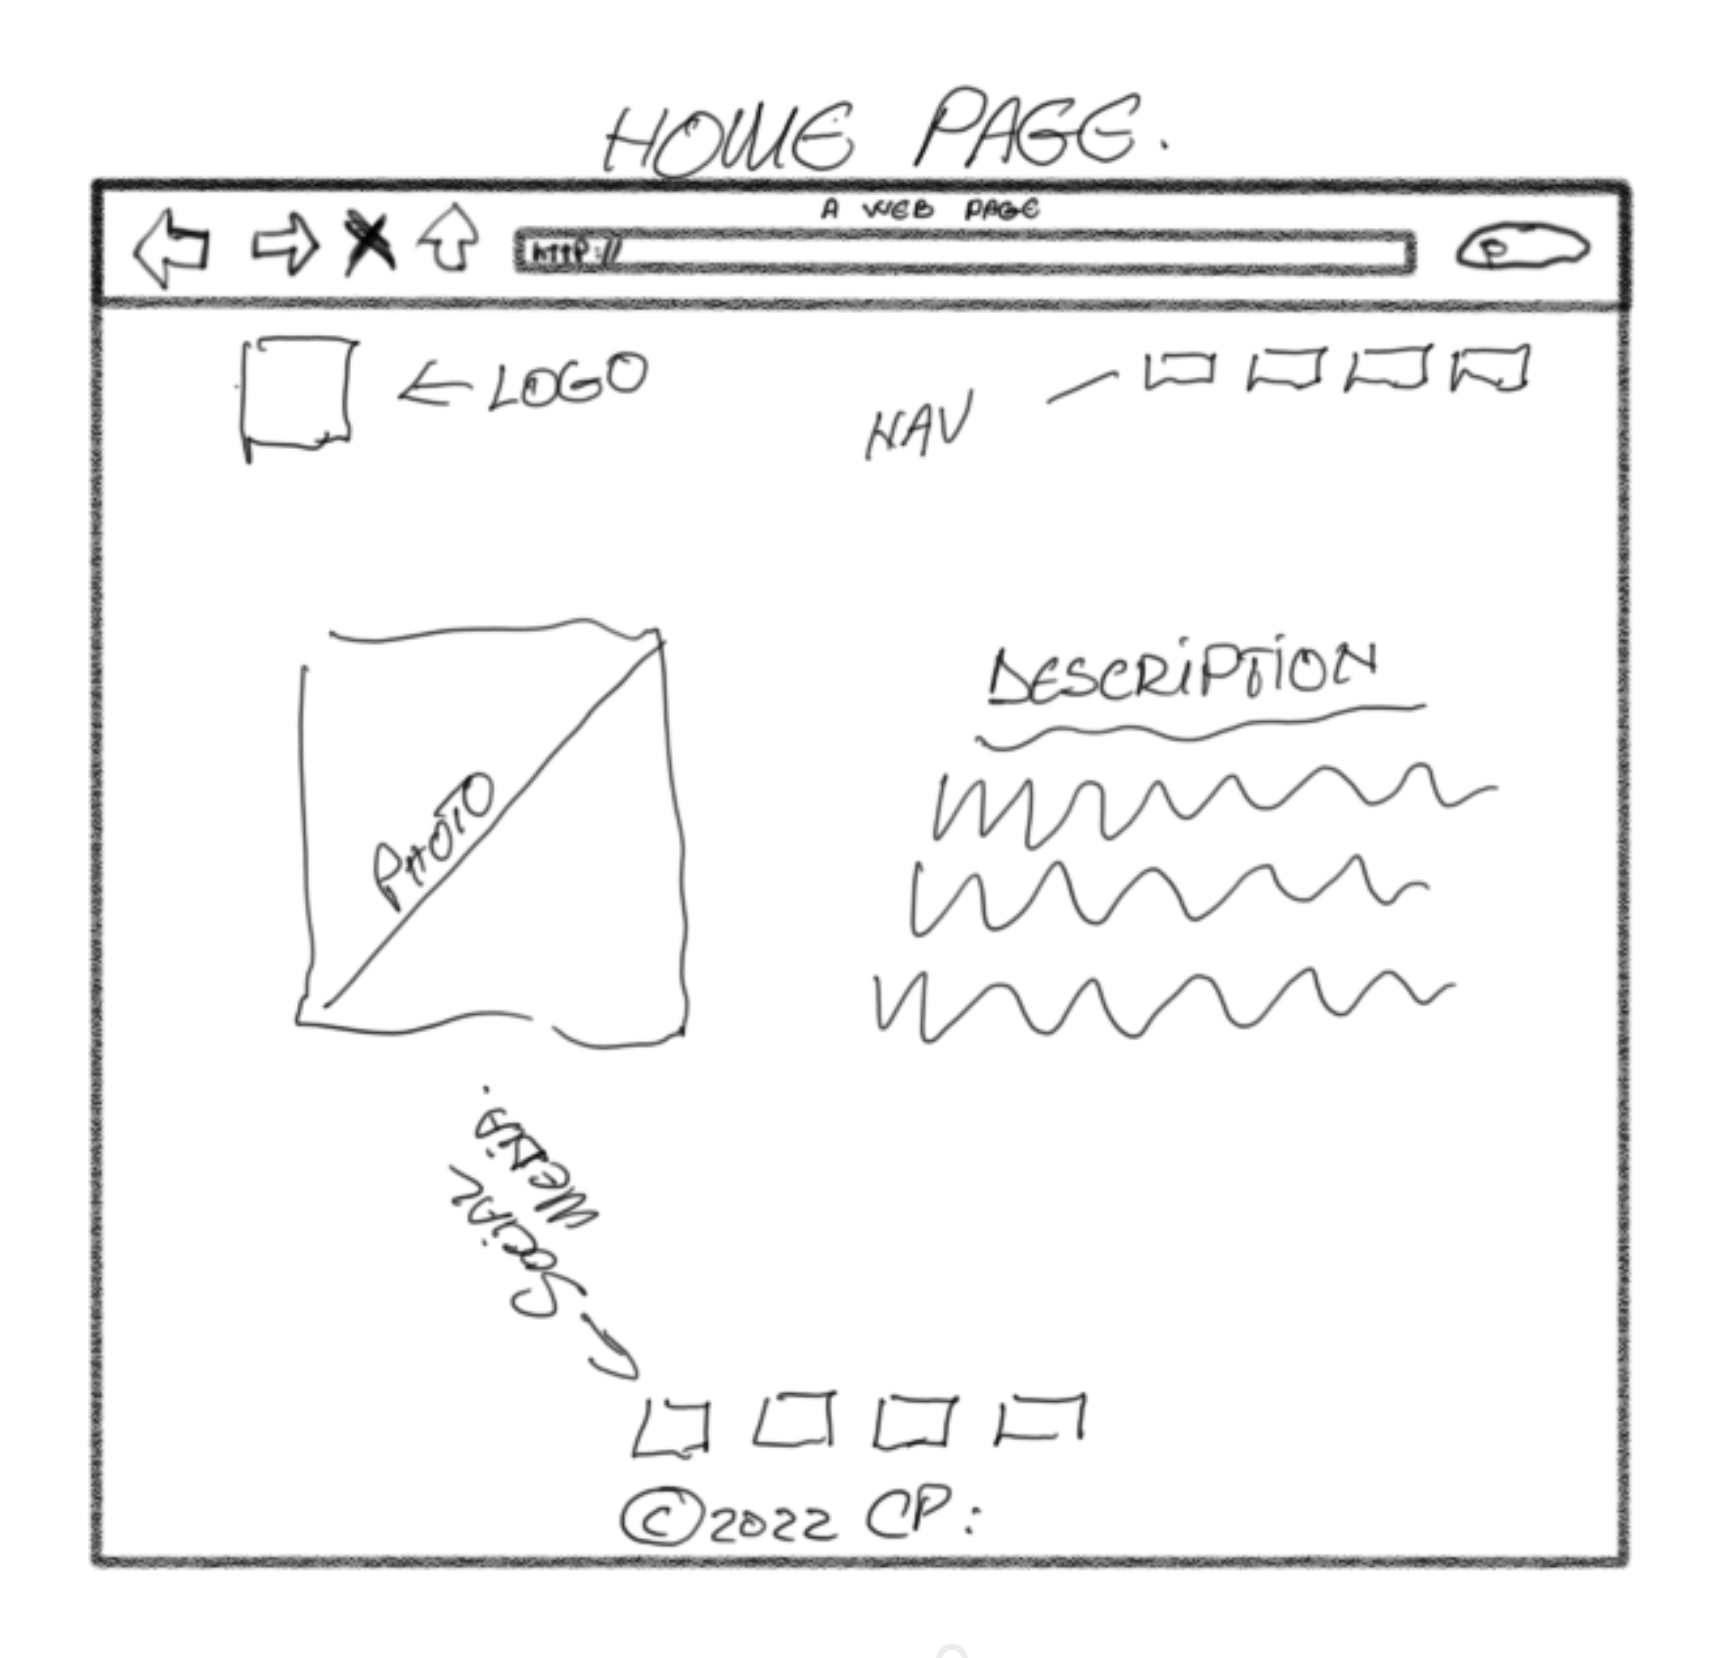 HOME PAGE.
A WEB PAGE
http://
LOGO
NAV
DESCRIPTION
PHOTO
SOCIAL
MEDIA.
©2022 CP: